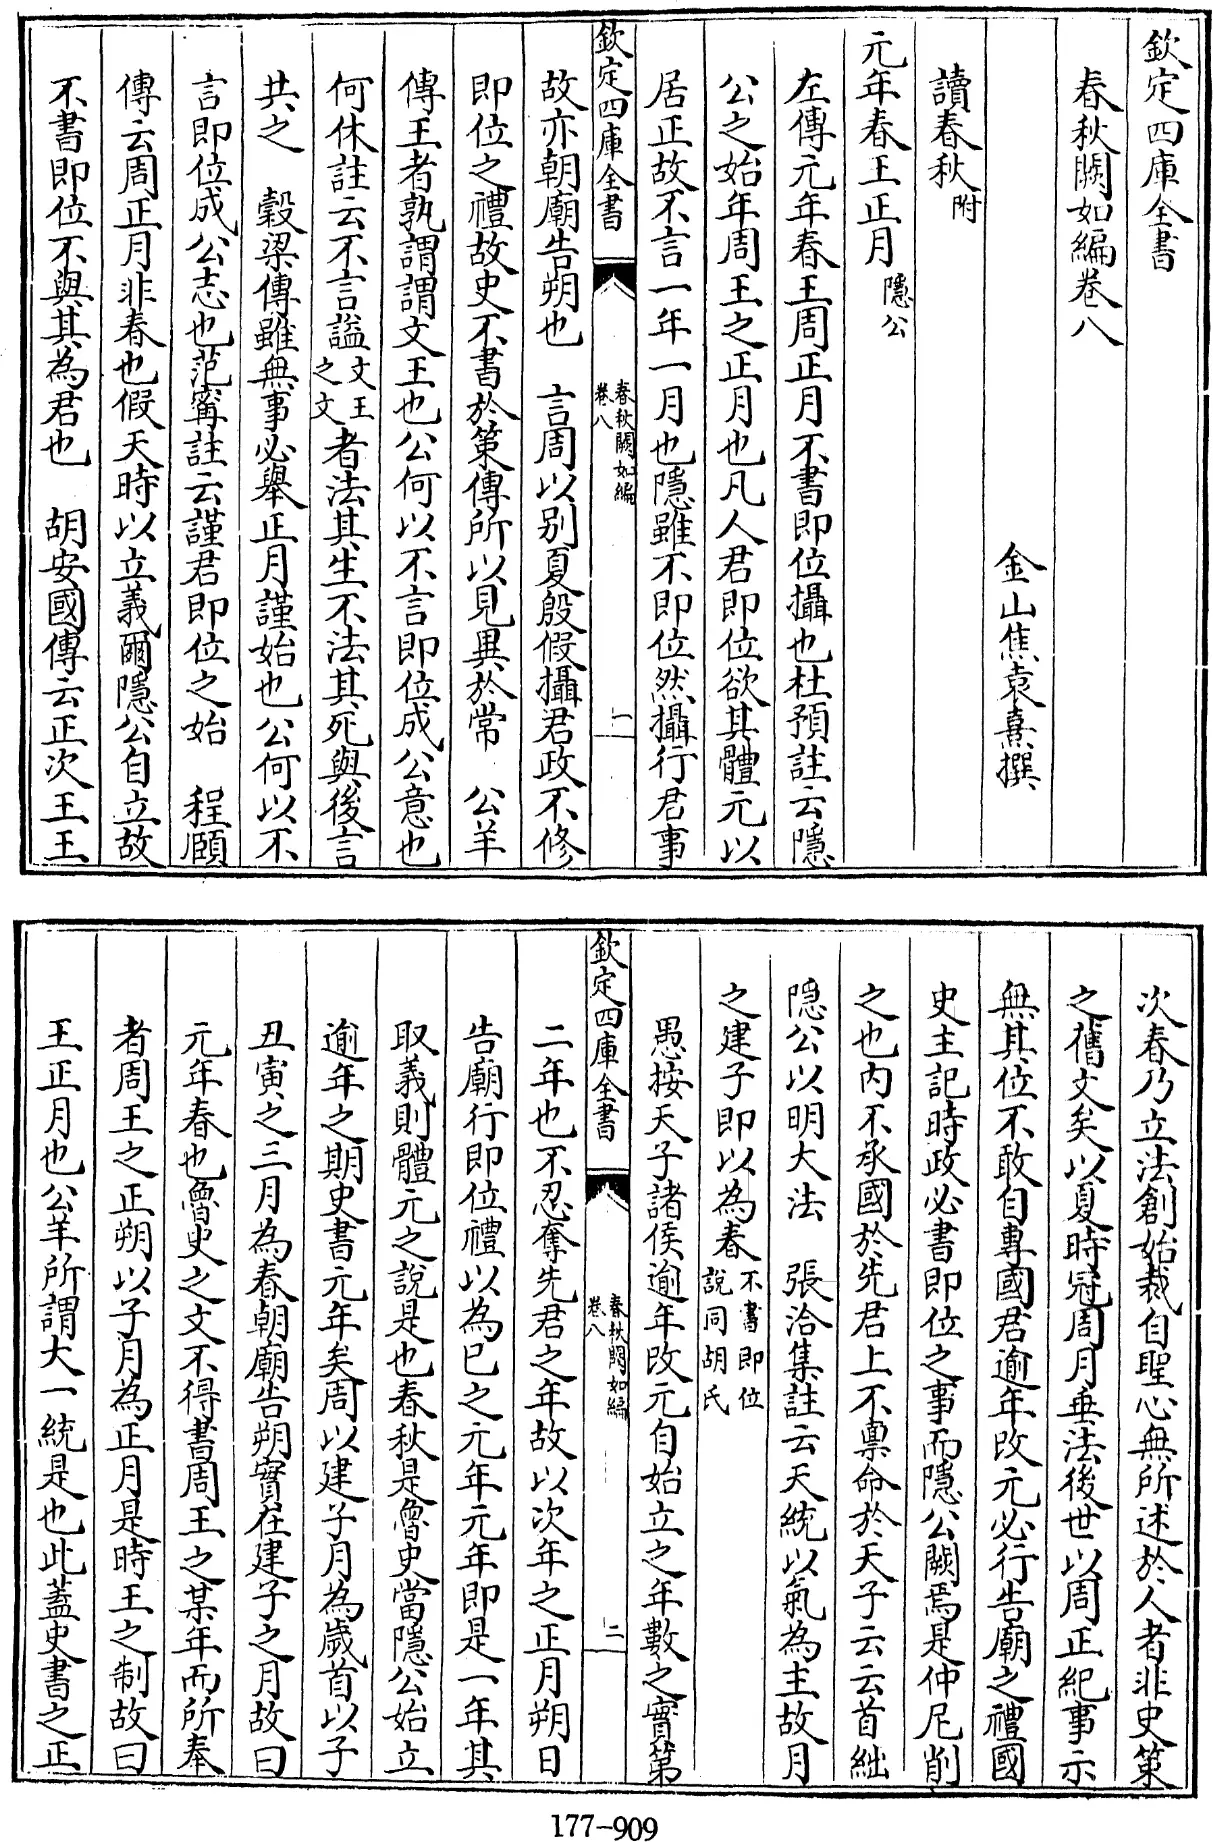 欽定四庫全書
春秋闕如編卷八
金山焦袁熹撰
讀春秋附
元年春王正月隱公
左傳元年春王周正月不書即位攝也杜預註云隱
公之始年周王之正月也凡人君即位欲其體元以
居正故不言一年一月也隱雖不即位然攝行君事
欽定四庫全書
春秋闕如編
卷八
一
故亦朝廟告朔也　言周以别夏殷假攝君政不修
即位之禮故史不書於策傳所以見異於常　公羊
傳王者孰謂謂文王也公何以不言即位成公意也
何休註云不言謚文王之文者法其生不法其死與後言
共之　榖梁傳雖無事必舉正月謹始也公何以不
言即位成公志也范甯註云謹君即位之始　程頤
傳云周正月非春也假天時以立義爾隱公自立故
不書即位不與其為君也　胡安國傳云正次王王
次春乃立法創始裁自聖心無所述於人者非史策
之舊文矣以夏時冠周月垂法後世以周正紀事示
無其位不敢自專國君逾年改元必行告廟之禮國
史主記時政必書即位之事而隱公闕焉是仲尼削
之也内不承國於先君上不禀命於天子云云首絀
隱公以明大法　張洽集註云天統以氣為主故月
之建子即以為春不書即位說同胡氏
愚按天子諸侯逾年改元自始立之年數之實第
欽定四庫全書
春秋闕如編
卷八
二
二年也不忍奪先君之年故以次年之正月朔日
告廟行即位禮以為已之元年元年即是一年其
取義則體元之說是也春秋是魯史當隱公始立
逾年之期史書元年矣周以建子月為歲首以子
丑寅之三月為春朝廟告朔實在建子之月故曰
元年春也魯史之文不得書周王之某年而所奉
者周王之正朔以子月為正月是時王之制故曰
王正月也公羊所謂大一統是也此蓋史書之正
177-909